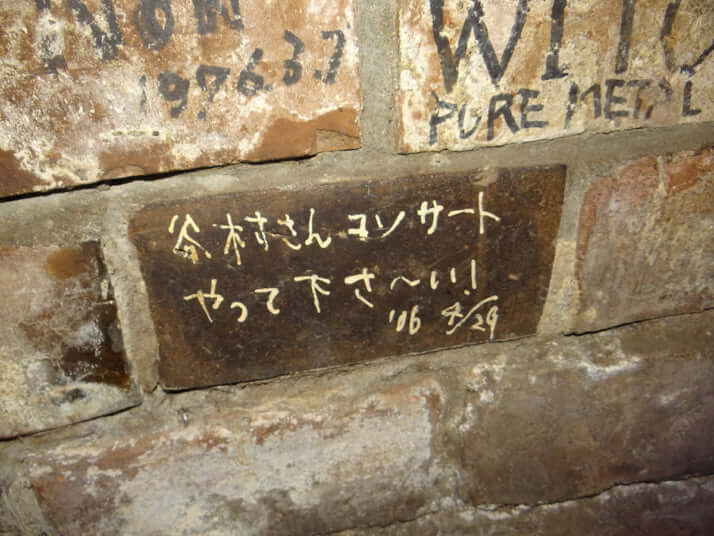 Now
1976.3.7
PURE METAL
谷村さんコンサート
やって下さ〜い!
'06 8/29